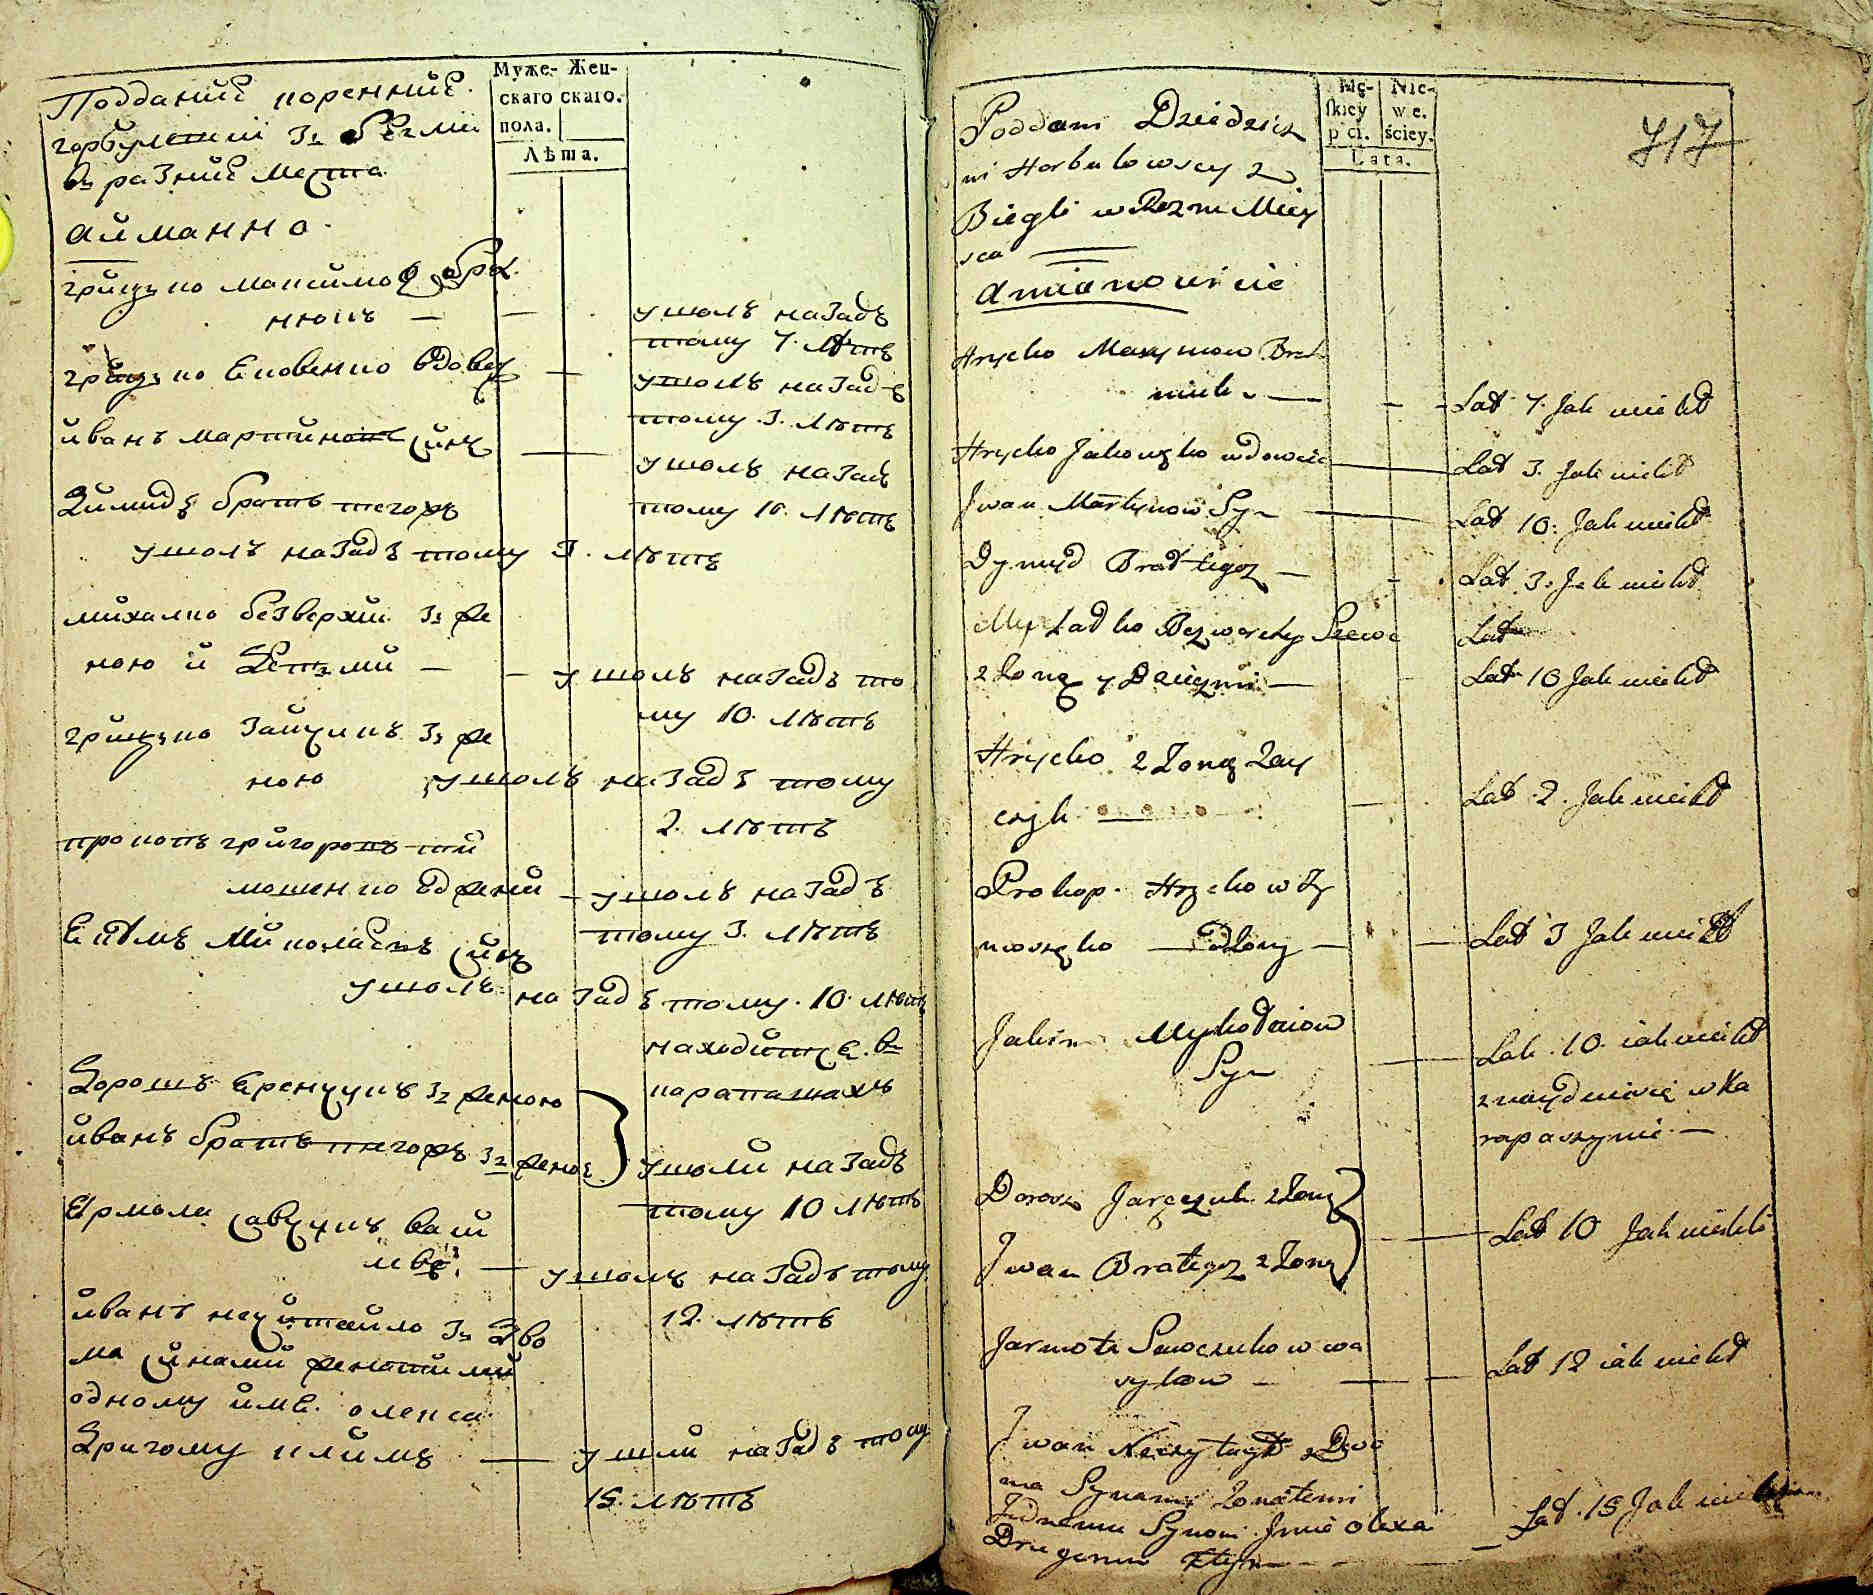 Подданиѣ коренниѣ
горбулетии зъ бѣгли
въ разниѣ места
айманно.
Муже- Жен-
скаго скаго.
пола.
Лѣта.
грицко максимов брат
никъ —
ушолъ назадъ
тому 7. лѣтъ
грицко Ековенко вдовец —
ушолъ назадъ
тому 3. лѣтъ
йванъ мартиновъ синъ —
ушолъ назадъ
тому 10. лѣтъ
Димидъ братъ тегожъ
ушолъ назадъ тому 3. лѣтъ
михалко безверхий зъ же
ною и детми — ушолъ назадъ то
му 10. лѣтъ
грицко зайчукъ зъ же
ною ушолъ назадъ тому
2. лѣтъ
прокопъ григоровъ ти
мошенко од жени — ушолъ назадъ
тому 3. лѣтъ
Екимъ Миколаевъ синъ
ушолъ назадъ тому 10. лѣтъ
находитце в
карапашахъ
Дорошъ Еремчукъ зъ женою
йванъ братъ тегожъ зъ женою
ушоли назадъ
тому 10 лѣтъ
Ермола савчукъ васи
лвъ — ушолъ назадъ тому
12. лѣтъ
йванъ нечитайло зъ дво
ма синами женатими
одному имъ олекса
Другому климъ — ушли назадъ тому
15. лѣтъ
717
Poddani Dziedzicz
ni Horbulowscy z
Biegli w Rozne Miey
sca
Amianowicie
Mę- Nie-
skiey we.
pci. ściey.
Lata.
Hrycko Maxymow Brat
nik — Lat 7. Jak uciekł
Hrycko Jakowęko wdowiec — Lat 3. Jak uciekł
Jwan Martynow Syn — Lat 10. Jak uciekł
Dymyd Brat tegoz — Lat 3. Jak uciekł
Bezwerchy Szewc Lat
z Zoną y Dziećmi — Lat 10 Jak uciekł
Hrycko z Zoną Zay
czyk — Lat 2. Jak uciekł
Prokop Hryckow Ty
moszęko od Zony — Lat 3 Jak uciekł
Jakim Mykołaiow
Syn Lat. 10. iak uciekł
znayduiesię w Ka
rapaszynie —
Dorosz Jaręczuk z Zoną
Jwan Brat tegoz z Zoną
Lat 10 Jak uciekli
Jarmoła Sawczukow wa
sylow — Lat 12 iak uciekł
Jwan Neczytayło z Dwo
ma Synami Zonatemi
Jednemu Synowi Jmie Olexa
Drugiemu Klym — Lat. 15 Jak uciekli